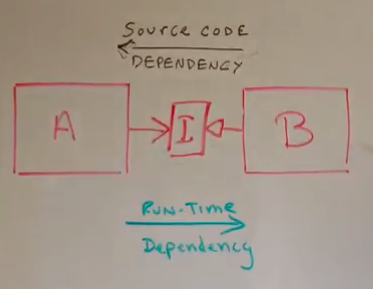 Source code
DEPENDENCY
A
I
B
RUN-TIME
Dependency